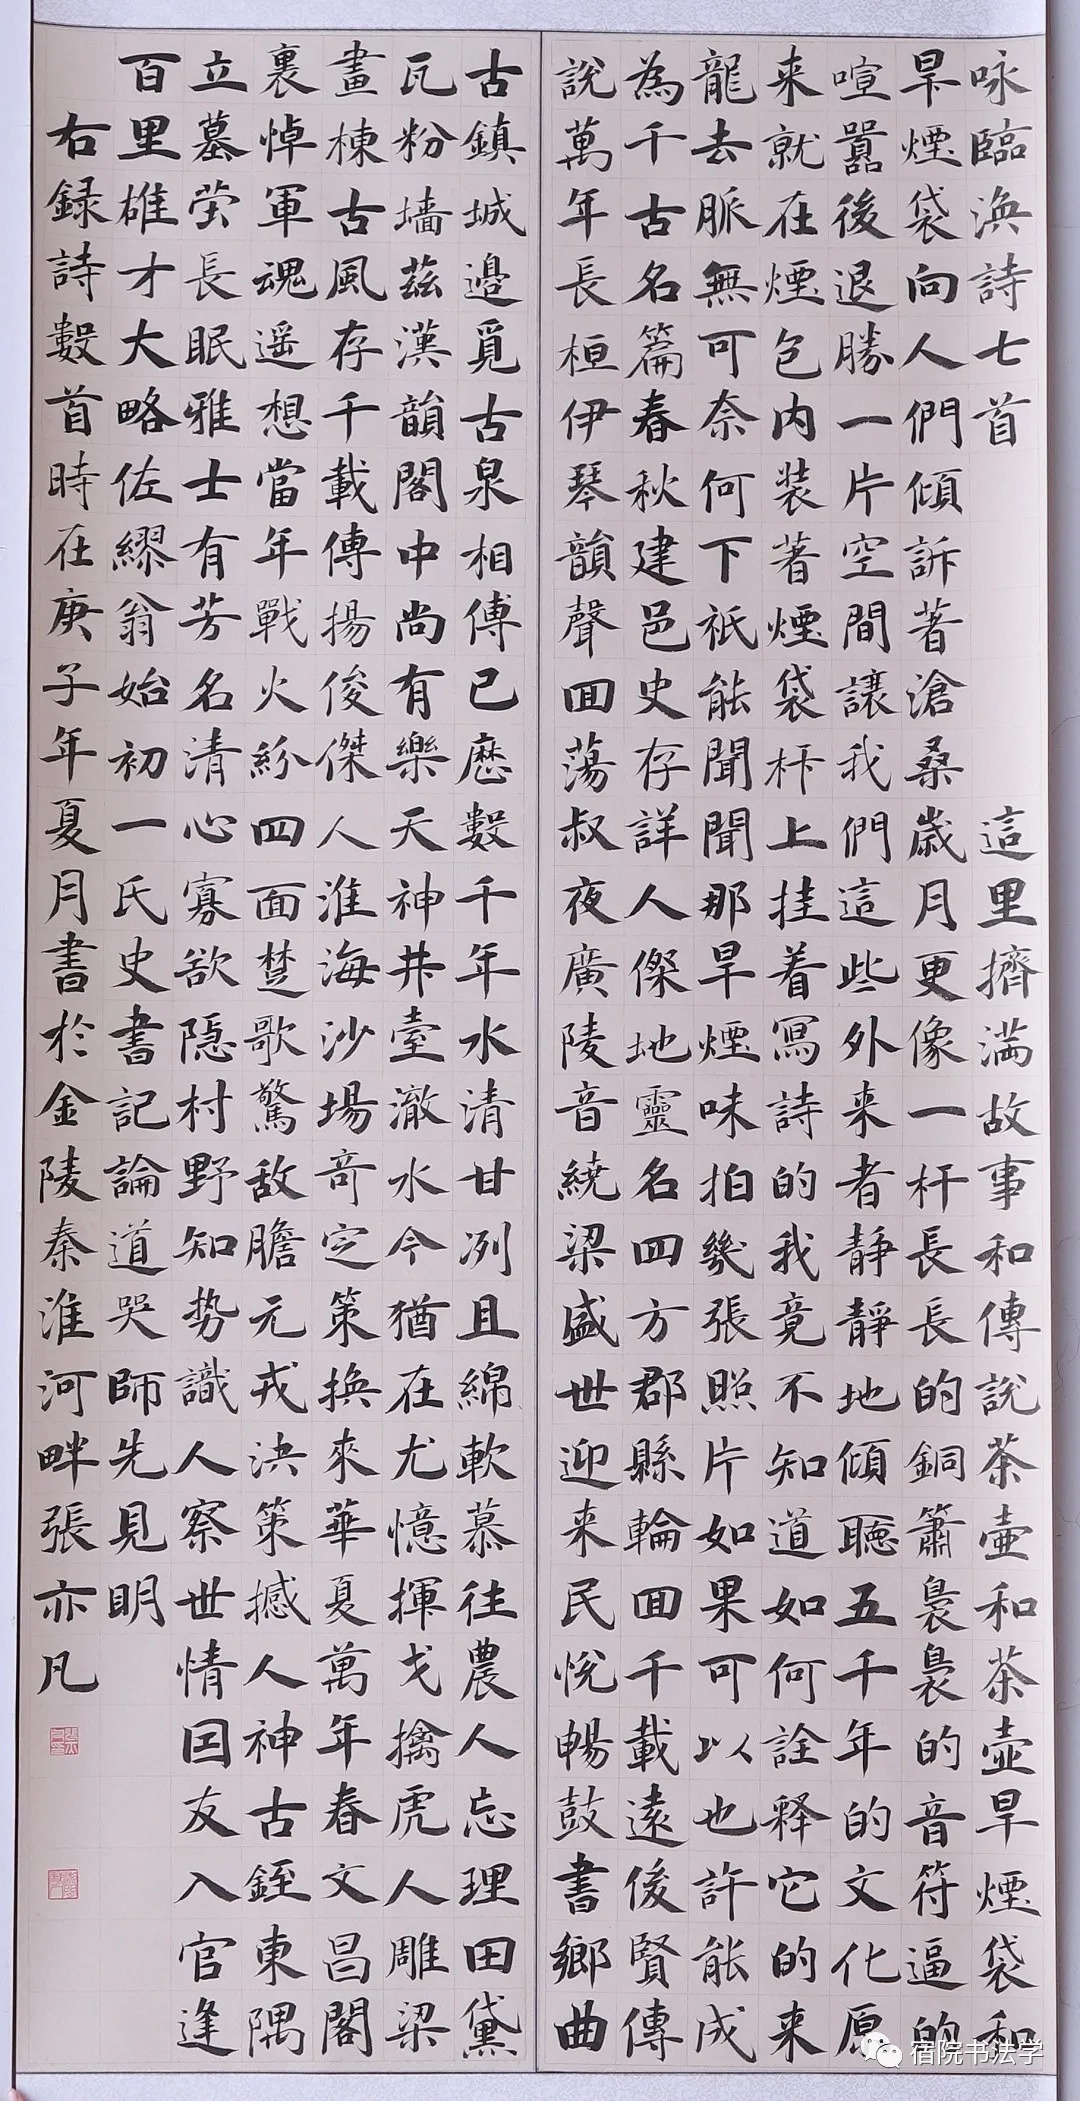 咏臨渙詩七首 這里擠满故事和傳說茶壺和茶壺旱煙袋和
旱煙袋向人們傾訴著滄桑歲月更像一杆長長的銅簫裊裊的音符逼的
喧嚣後退勝一片空間讓我們這些外来者静静地傾聽五千年的文化原
来就在煙包内装著煙袋杆上挂着寫詩的我竟不知道如何詮释它的来
龍去脈無可奈何下衹能聞聞那旱煙味拍幾張照片如果可以也許能成
為千古名篇春秋建邑史存詳人傑地靈名四方郡縣輪回千載遠後賢傳
說萬年長桓伊琴韻聲回蕩叔夜廣陵音繞梁盛世迎来民悦暢鼓書鄉曲
古鎮城邊覓古泉相傳已歷數千年水清甘冽且綿軟慕往農人忘理田黛
瓦粉墙兹漢韻閣中尚有樂天神井臺澈水今猶在尤憶揮戈擒虎人雕梁
畫棟古風存千載傳揚俊傑人淮海沙場奇定策换來華夏萬年春文昌閣
裏悼軍魂遥想當年戰火紛四面楚歌驚敵膽元戎決策撼人神古銍東隅
立墓茔長眠雅士有芳名清心寡欲隐村野知势識人察世情因友入官逢
百里雄才大略佐繆翁始初一氏史書記論道哭師先見明
右録詩數首時在庚子年夏月書於金陵秦淮河畔張亦凡
宿院书法学